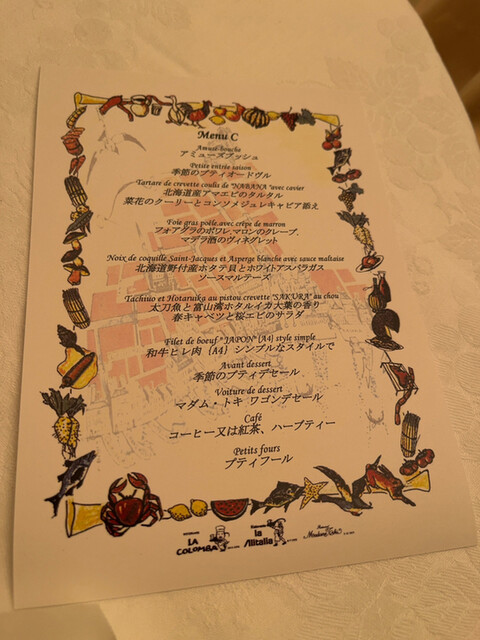 Menu C
Amuse-bouche
アミューズブッシュ
Petite entrée saison
季節のプティオードヴル
Tartare de crevette coulis de "NABANA" avec cavier
北海道産アマエビのタルタル
菜花のクーリーとコンソメジュレキャビア添え
Foie gras poêle,avec crêpe de marron
フォアグラのポワレ,マロンのクレープ、
マデラ酒のヴィネグレット
Noix de coquille Saint-Jacques et Asperge blanche avec sauce maltaise
北海道野付産ホタテ貝とホワイトアスパラガス
ソースマルテーズ
Tachiuo et Hotaruika au pistou crevette "SAKURA" au chou
太刀魚と富山湾ホタルイカ大葉の香り
春キャベツと桜エビのサラダ
Filet de boeuf "JAPON" [A4] style simple
和牛ヒレ肉 [A4] シンプルなスタイルで
Avant dessert
季節のプティデセール
Voiture de dessert
マダム・トキ ワゴンデセール
Café
コーヒー又は紅茶、ハーブティー
Petits fours
プティフール
LA COLOMBA
la Alitalia
Madame Toki